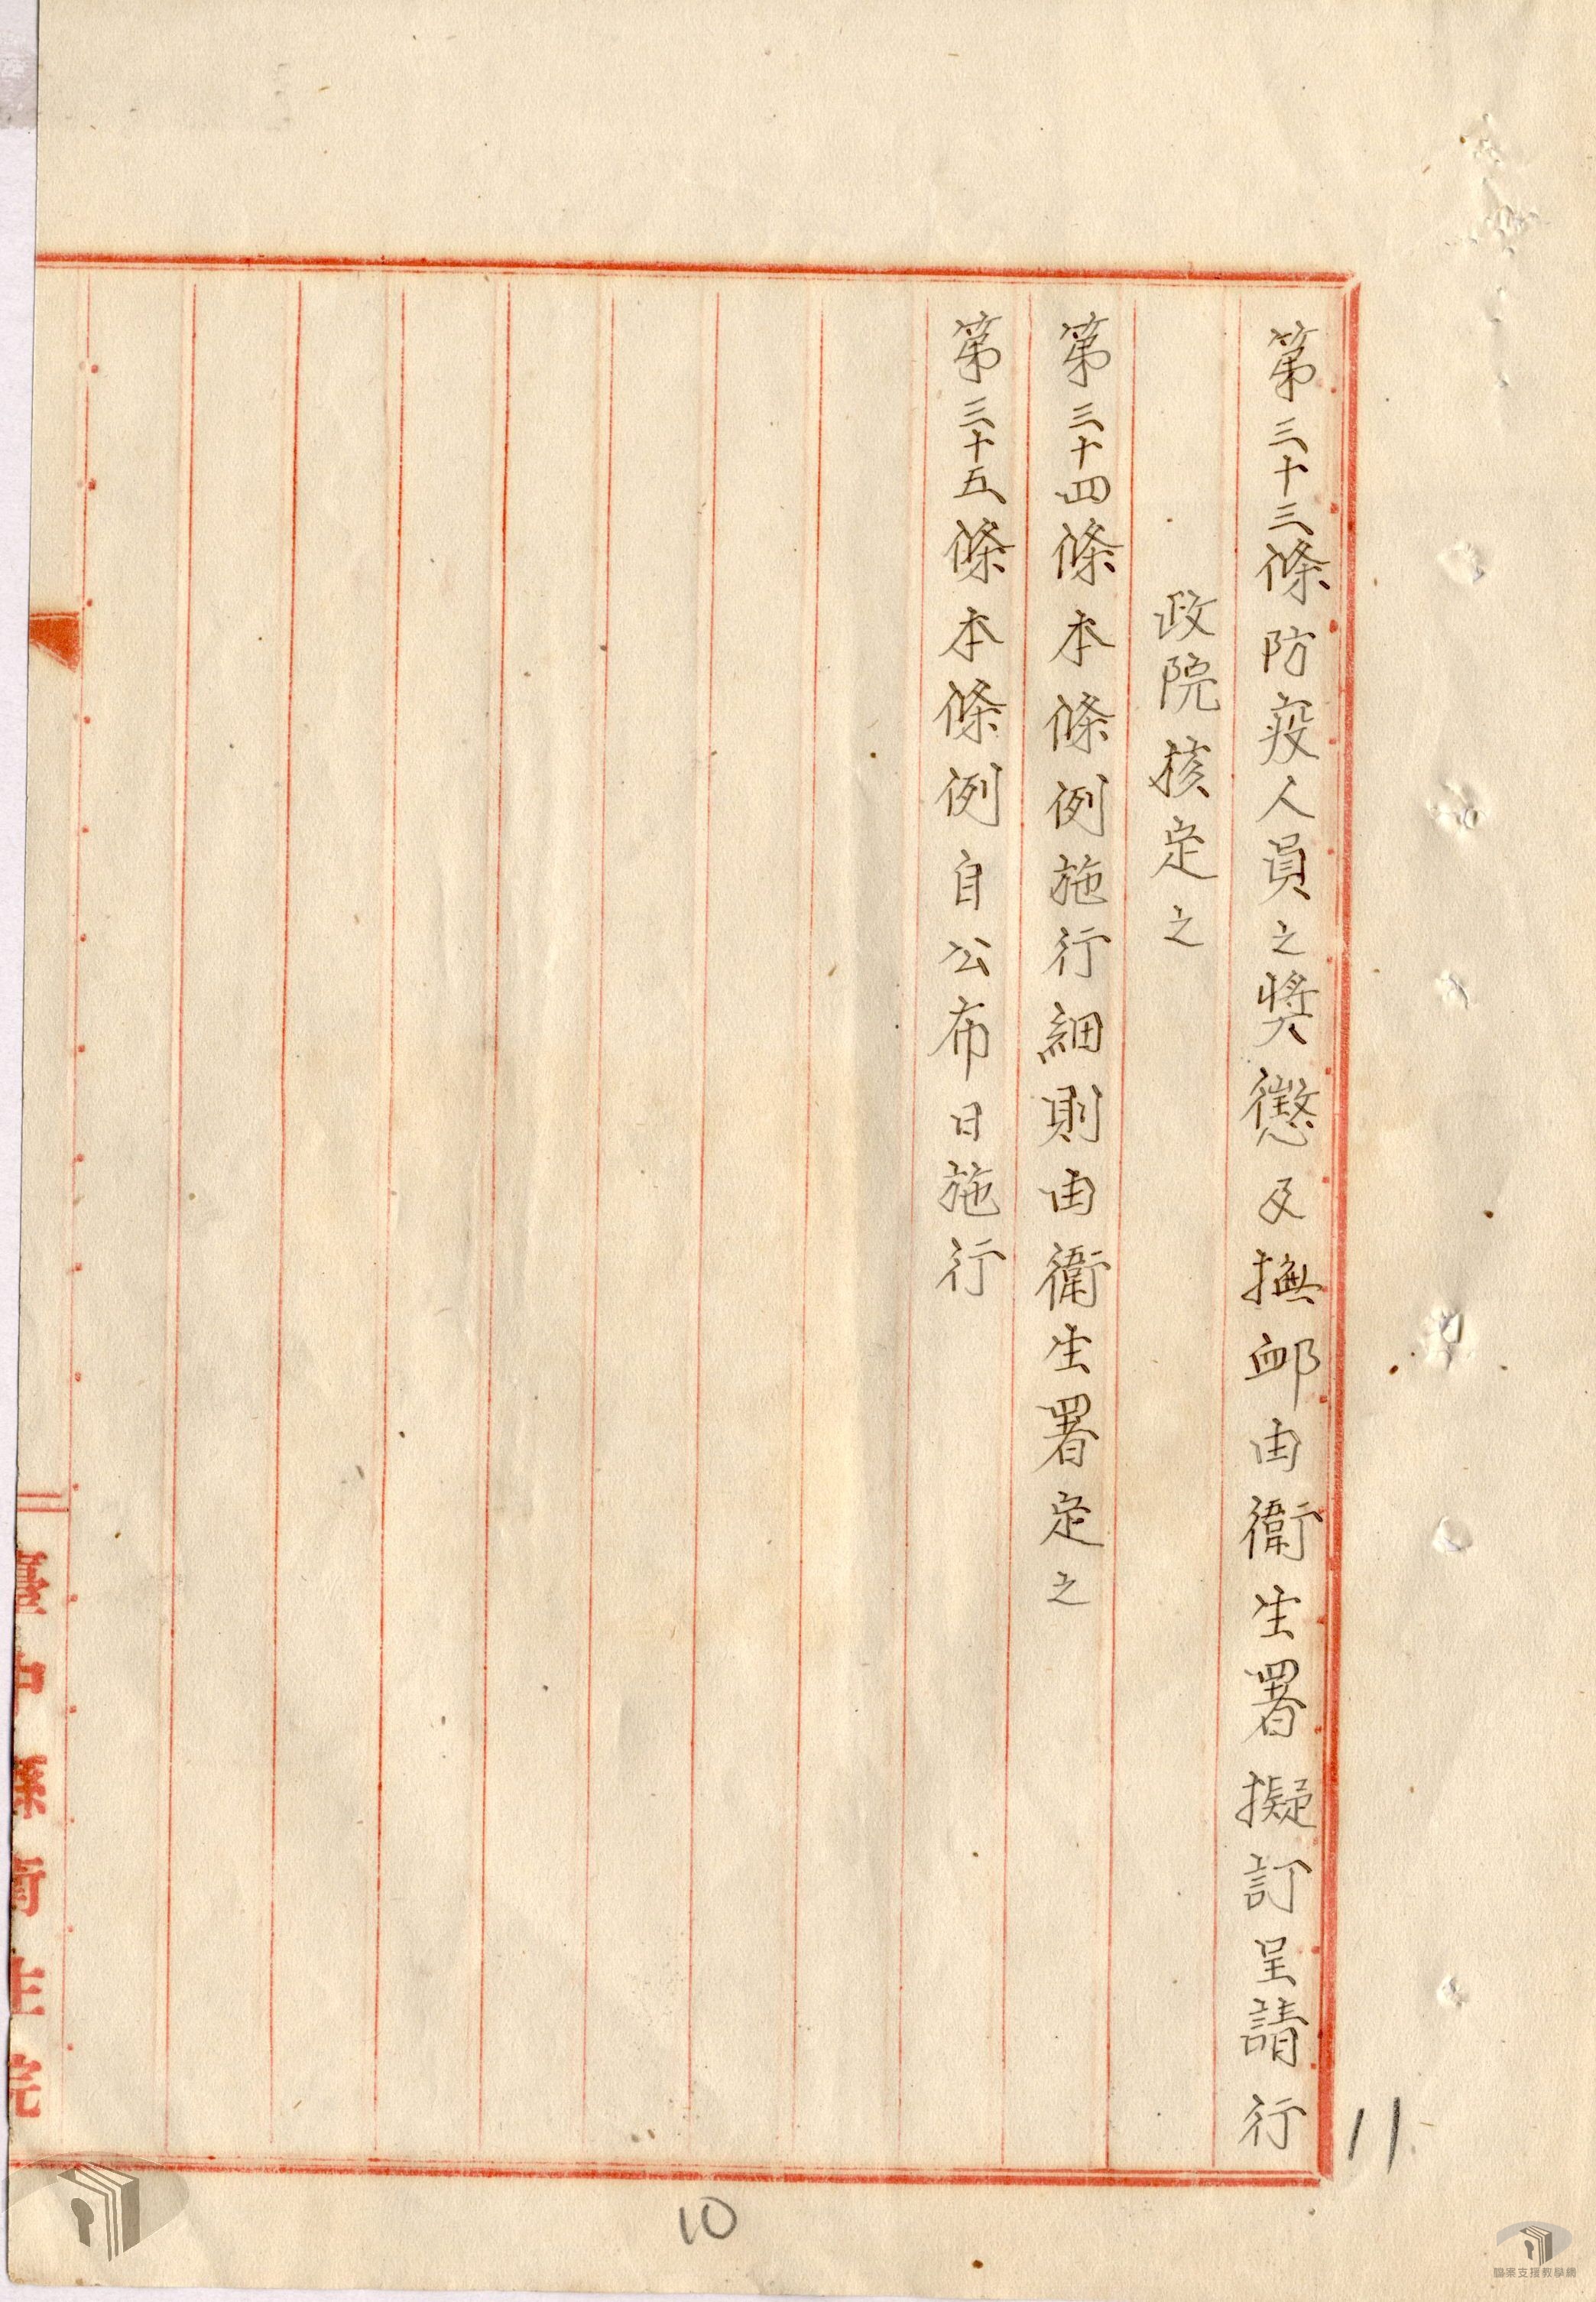 第三十三條防疫人員之獎懲及撫卹由衛生署擬訂呈請行
政院核定之
第三十四條本條例施行細則由衛生署定之
第三十五條本條例自公布日施行
臺中縣衛生院
11
10
檔案支援教學網